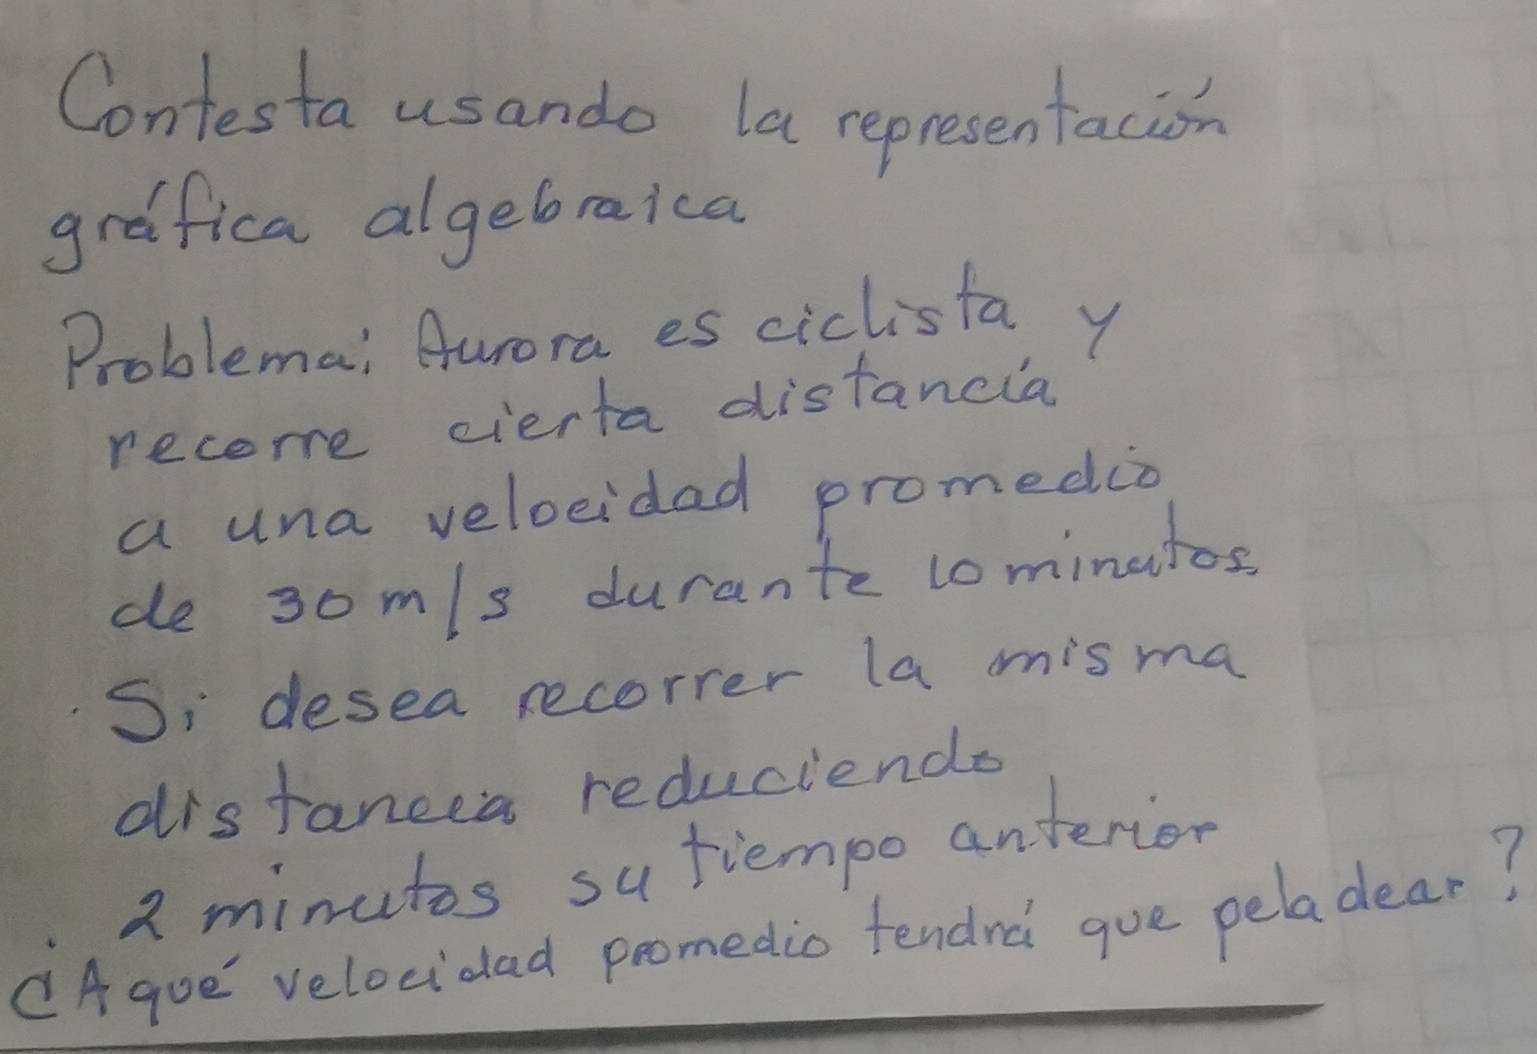 Contesta usando la representación
gráfica algebraica
Problema: Aurora es ciclista y
recorre cierta distancia
a una velocidad promedio
de 30 m/s durante 10 minutos.
Si desea recorrer la misma
distancia reduciendo
2 minutos su tiempo anterior
¿A qué velocidad promedio tendrá que peladear?